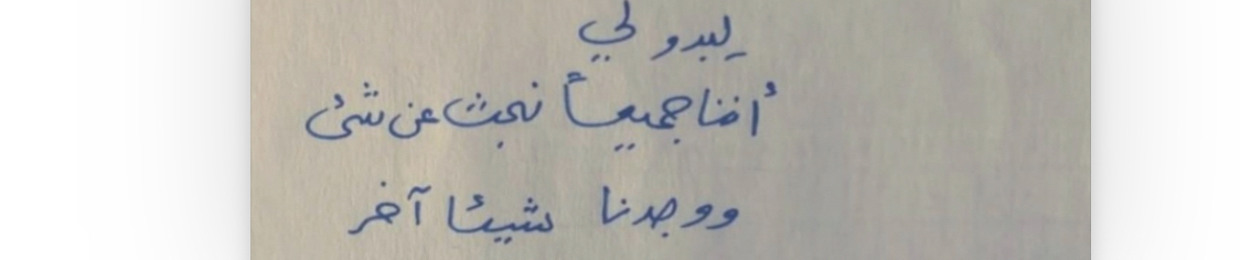 يبدو لي
أننا جميعاً نبحث عن شئ
ووجدنا شيئا آخر